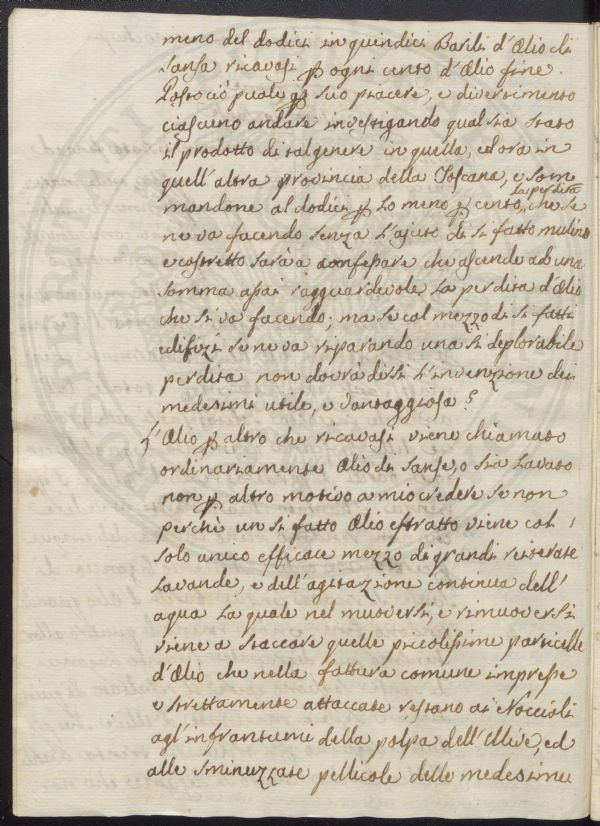 meno del dodici in quindici Barili d'Olio di
Sansa ricavasi p ogni cento d'Olio fine.
Posto ciò puole p suo piacere, e divertimento
ciascuno andare investigando qual sia stato
il prodotto di tal genere in quella, ed ora in
quell'altra provincia della Toscana, e som
mandone al dodici p lo meno p cento, la perdita che se
ne va facendo senza l'ajuto di si fatto mulino
e costretto sarà a confessare che ascende ad una
somma assai ragguardevole la perdita d'Olio
che si va facendo; ma se col mezzo di si fatti
edifizi se ne va riparando una si deplorabile
perdita non dovrà dirsi l'invenzione dei
medesimi utile, e vantaggiosa?
L'Olio p altro che ricavasi viene chiamato
ordinariamente Olio di Sanse, o sia lavato
non p altro motivo a mio credere se non
perchè un si fatto Olio estratto viene col
solo unico efficace mezzo di grandi reiterate
lavande, e dell'agitazione continua dell'
aqua la quale nel muoversi, e rimuoversi
viene a staccare quelle piccolissime particelle
d'Olio che nella fattura comune impresse
e strettamente attaccate restano ai Noccioli
agl'infrantumi della polpa dell'Ulive, ed
alle sminuzzate pellicole delle medesime